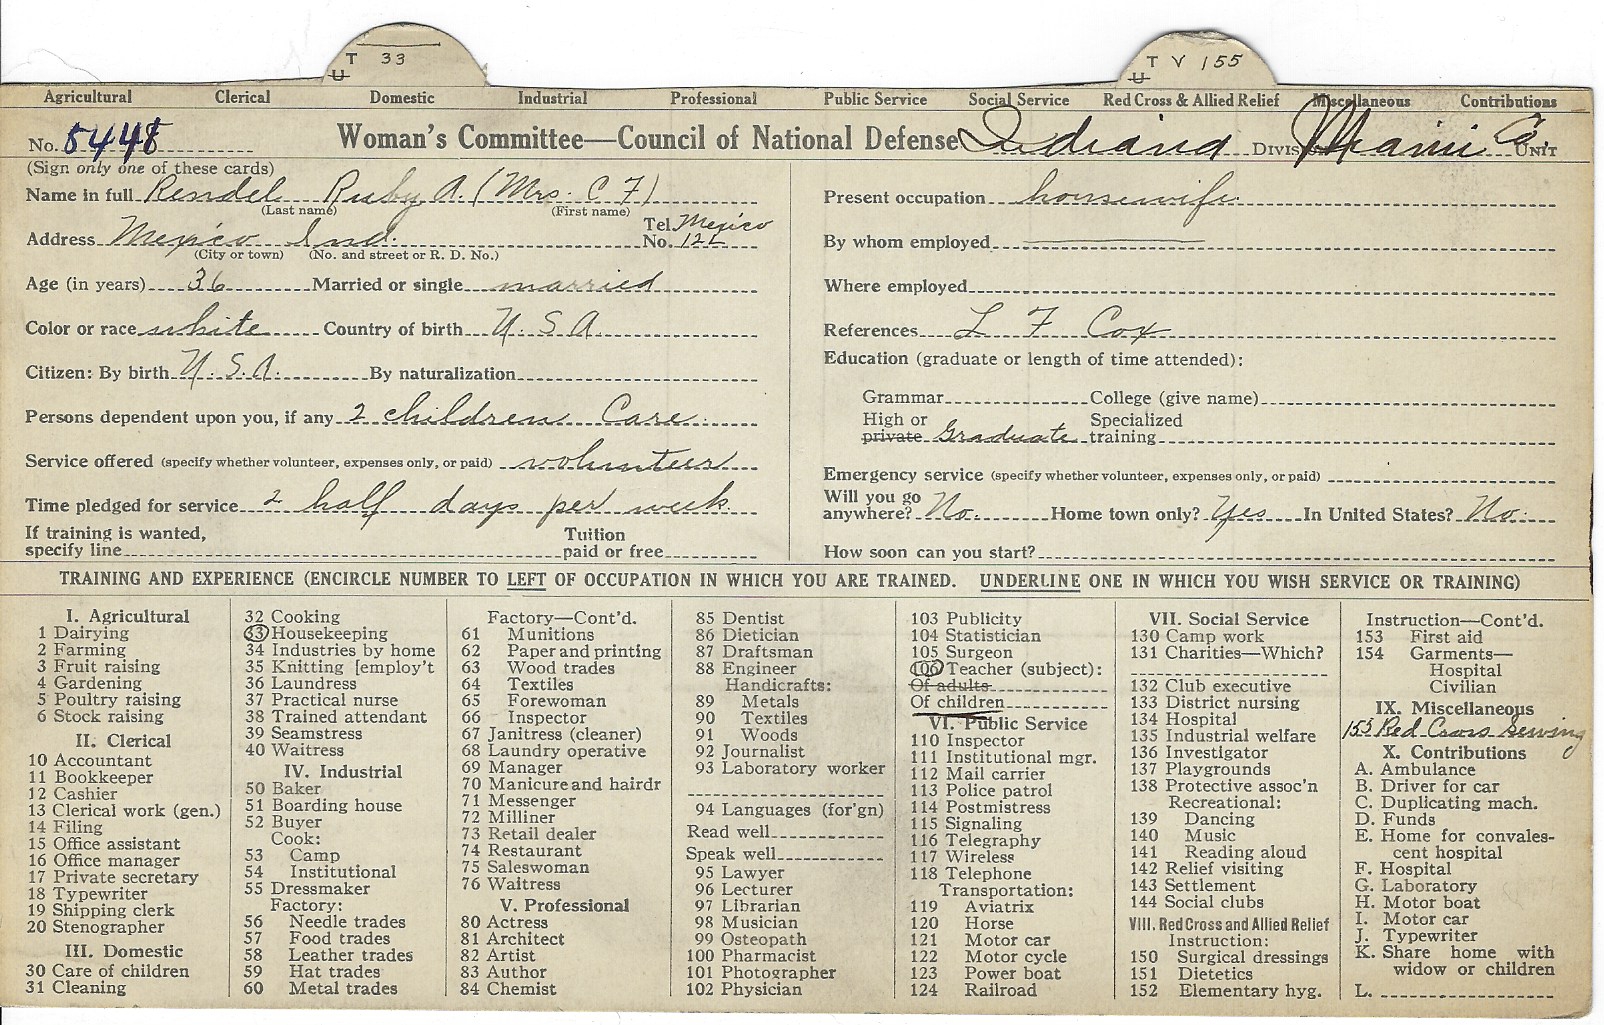 T 33
U
T V 155
U
Agricultural Clerical Domestic Industrial Professional Public Service Social Service Red Cross & Allied Relief Miscellaneous Contributions
No. 5448 Woman's Committee—Council of National Defense Indiana DIVISION Miami Co. UNIT
(Sign only one of these cards)
Name in full Rendel Ruby A. (Mrs. C F)
(Last name) (First name)
Address Mexico Ind. Tel. No. Mexico 12L
(City or town) (No. and street or R. D. No.)
Age (in years) 36 Married or single married
Color or race white Country of birth U. S. A.
Citizen: By birth U. S. A. By naturalization
Persons dependent upon you, if any 2 children Care
Service offered (specify whether volunteer, expenses only, or paid) volunteer
Time pledged for service 2 half days per week
If training is wanted, specify line Tuition paid or free
Present occupation housewife
By whom employed
Where employed
References L F Cox
Education (graduate or length of time attended):
Grammar College (give name)
High or private Graduate Specialized training
Emergency service (specify whether volunteer, expenses only, or paid)
Will you go anywhere? No. Home town only? Yes In United States? No.
How soon can you start?
TRAINING AND EXPERIENCE (ENCIRCLE NUMBER TO LEFT OF OCCUPATION IN WHICH YOU ARE TRAINED. UNDERLINE ONE IN WHICH YOU WISH SERVICE OR TRAINING)
I. Agricultural
1 Dairying
2 Farming
3 Fruit raising
4 Gardening
5 Poultry raising
6 Stock raising
II. Clerical
10 Accountant
11 Bookkeeper
12 Cashier
13 Clerical work (gen.)
14 Filing
15 Office assistant
16 Office manager
17 Private secretary
18 Typewriter
19 Shipping clerk
20 Stenographer
III. Domestic
30 Care of children
31 Cleaning
32 Cooking
33 Housekeeping
34 Industries by home
35 Knitting [employ't
36 Laundress
37 Practical nurse
38 Trained attendant
39 Seamstress
40 Waitress
IV. Industrial
50 Baker
51 Boarding house
52 Buyer
Cook:
53 Camp
54 Institutional
55 Dressmaker
Factory:
56 Needle trades
57 Food trades
58 Leather trades
59 Hat trades
60 Metal trades
Factory—Cont'd.
61 Munitions
62 Paper and printing
63 Wood trades
64 Textiles
65 Forewoman
66 Inspector
67 Janitress (cleaner)
68 Laundry operative
69 Manager
70 Manicure and hairdr
71 Messenger
72 Milliner
73 Retail dealer
74 Restaurant
75 Saleswoman
76 Waitress
V. Professional
80 Actress
81 Architect
82 Artist
83 Author
84 Chemist
85 Dentist
86 Dietician
87 Draftsman
88 Engineer
Handicrafts:
89 Metals
90 Textiles
91 Woods
92 Journalist
93 Laboratory worker
94 Languages (for'gn)
Read well
Speak well
95 Lawyer
96 Lecturer
97 Librarian
98 Musician
99 Osteopath
100 Pharmacist
101 Photographer
102 Physician
103 Publicity
104 Statistician
105 Surgeon
106 Teacher (subject):
Of adults
Of children
VI. Public Service
110 Inspector
111 Institutional mgr.
112 Mail carrier
113 Police patrol
114 Postmistress
115 Signaling
116 Telegraphy
117 Wireless
118 Telephone
Transportation:
119 Aviatrix
120 Horse
121 Motor car
122 Motor cycle
123 Power boat
124 Railroad
VII. Social Service
130 Camp work
131 Charities—Which?
132 Club executive
133 District nursing
134 Hospital
135 Industrial welfare
136 Investigator
137 Playgrounds
138 Protective assoc'n
Recreational:
139 Dancing
140 Music
141 Reading aloud
142 Relief visiting
143 Settlement
144 Social clubs
VIII. Red Cross and Allied Relief
Instruction:
150 Surgical dressings
151 Dietetics
152 Elementary hyg.
Instruction—Cont'd.
153 First aid
154 Garments—
Hospital
Civilian
IX. Miscellaneous
155 Red Cross Sewing
X. Contributions
A. Ambulance
B. Driver for car
C. Duplicating mach.
D. Funds
E. Home for convales-
cent hospital
F. Hospital
G. Laboratory
H. Motor boat
I. Motor car
J. Typewriter
K. Share home with
widow or children
L.